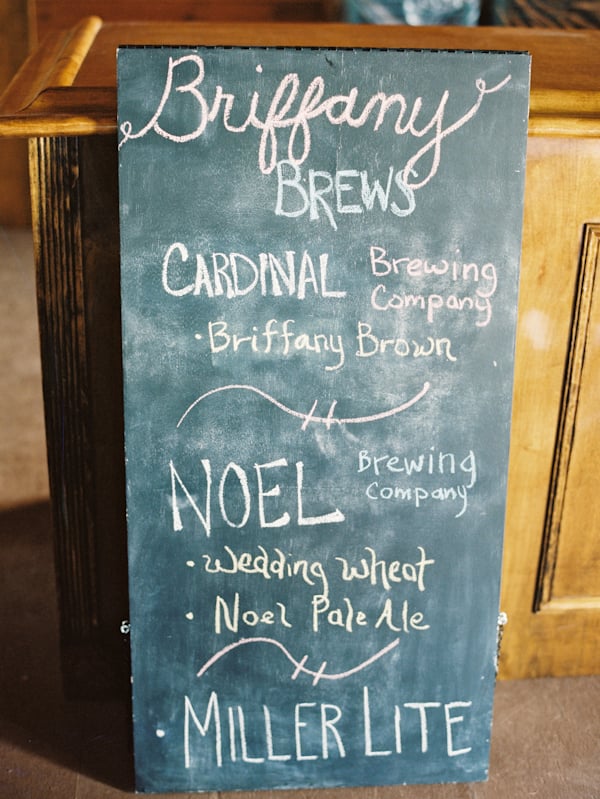 Briffany
BREWS
CARDINAL Brewing Company
• Briffany Brown
NOEL Brewing Company
• Wedding Wheat
• Noel Pale Ale
• MILLER LITE